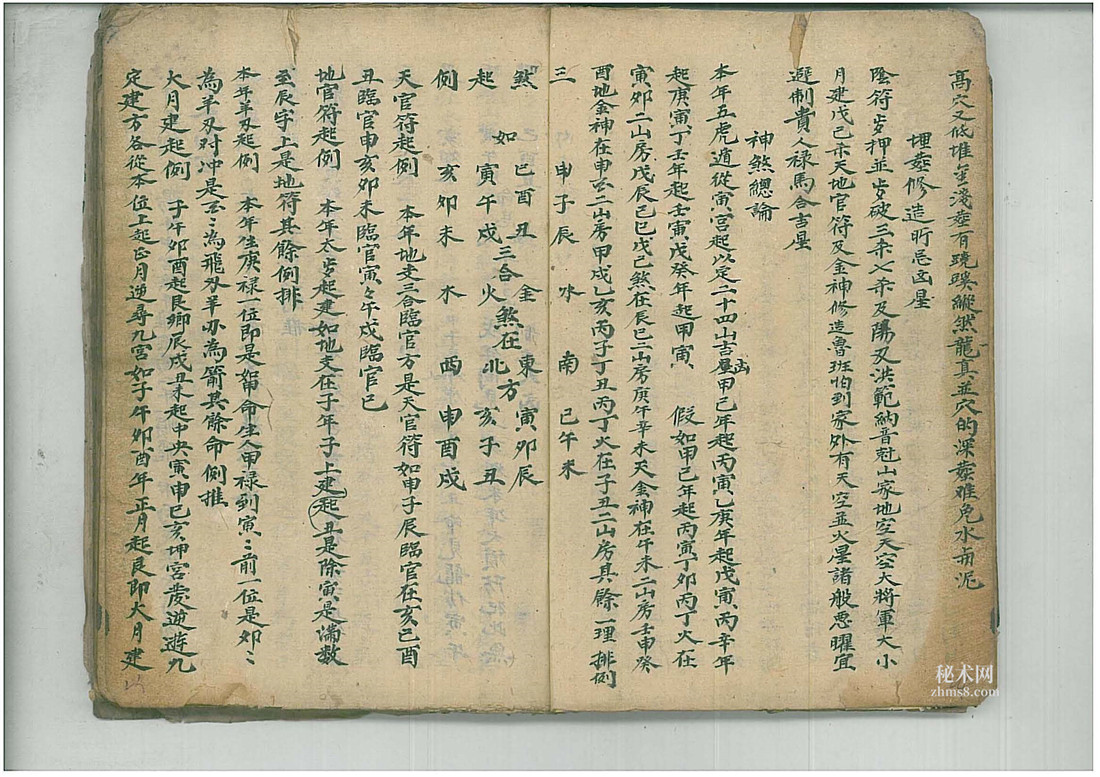 高穴又低堆葬淺葬有蹺蹊縱然龍真並穴的深葬难免水而泥
埋葬修造所忌凶星
陰符歲押並歲破三杀七杀及陽刃洪範納音尅山家地空天空大將軍大小
月建戊己杀天地官符及金神修造魯班怕到家外有天空並火星諸般悪曜宜
避制貴人禄馬合吉星
神煞總論
本年五虎遁從寅宮起以定二十四山吉凶星甲己年起丙寅乙庚年起戊寅丙辛年
起庚寅丁壬年起壬寅戊癸年起甲寅 假如甲己年起丙寅丁卯丙丁火在
寅卯二山房戊辰己巳戊己煞在辰巳二山房庚午辛未天金神在午未二山房壬申癸
酉地金神在申酉二山房甲戌乙亥丙子丁丑丙丁火在子丑二山房其餘一理排例
三 申子辰 水 南 巳午未
煞 如 巳酉丑 金 東 寅卯辰
起 寅午戌 三合火 煞在北方 亥子丑
例 亥卯未 木 西 申酉戌
天官符起例 本年地支三合臨官方是天官符如申子辰臨官在亥巳酉
丑臨官申亥卯未臨官寅々午戌臨官巳
地官符起例 本年太歲起建如地支在子年子上建起丑是除寅是滿数
至辰字上是地符其餘例排
本年羊刄起例 本年生庚禄一位即是如甲命生人甲禄到寅：前一位是卯：
為羊刄对冲是酉：為飛刄羊刃為箭其餘命例推
大月建起例 子午卯酉起艮鄉辰戌丑未起中央寅申巳亥坤宮發逆遊九
定建方各從本位上起正月逆尋九宮如子午卯酉年正月起艮即大月建
秘术网
zhms8.com